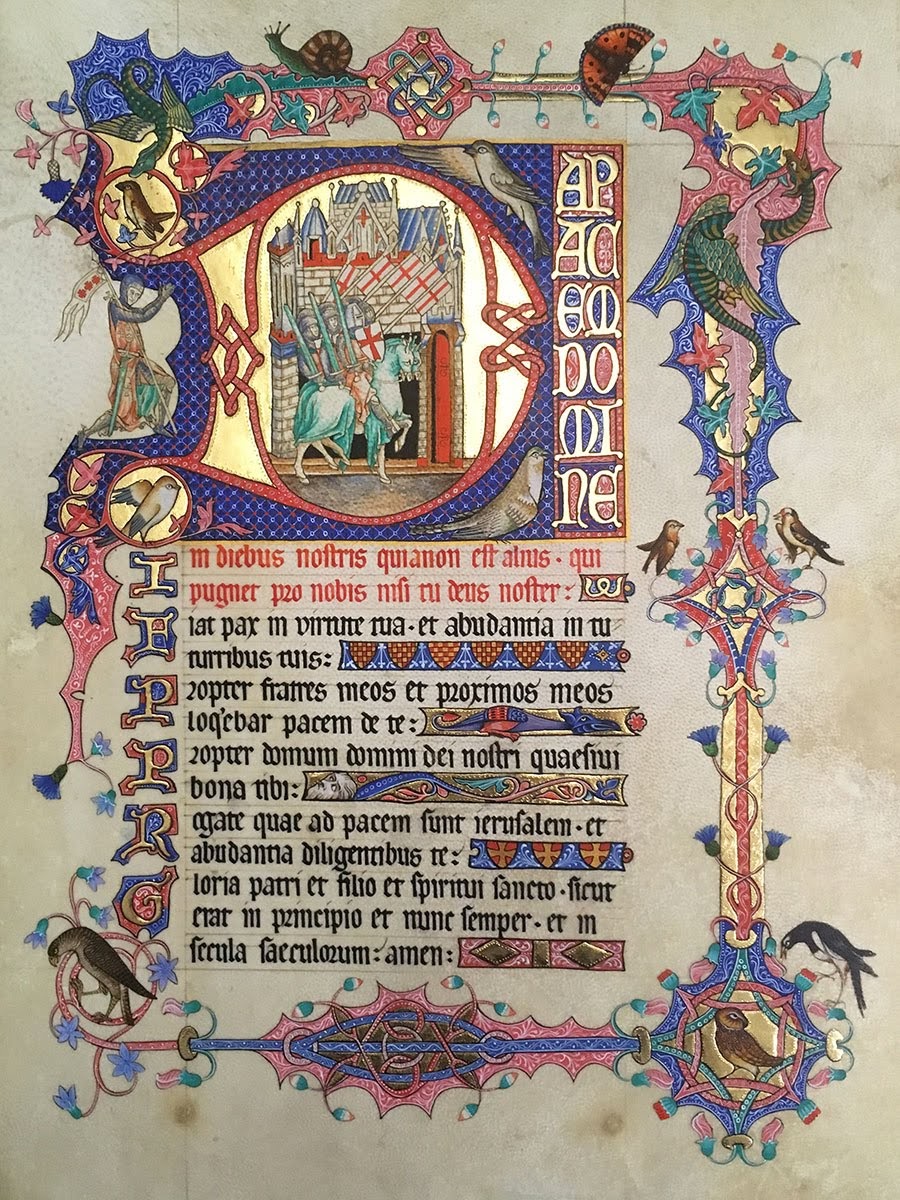 D
AP
AC
EM
DO
MI
NE
I in diebus nostris quianon est alius · qui
pugnet pro nobis nisi tu deus noster:
F iat pax in virtute tua · et abudantia in tu
turribus tuis:
P ropter fratres meos et proximos meos
loq'ebar pacem de te:
P ropter domum domini dei nostri quaesiui
bona tibi:
R ogate quae ad pacem sunt ierusalem · et
abudantia diligentibus te:
G loria patri et filio et spiritui sancto · sicut
erat in principio et nunc semper · et in
secula saeculorum: amen: